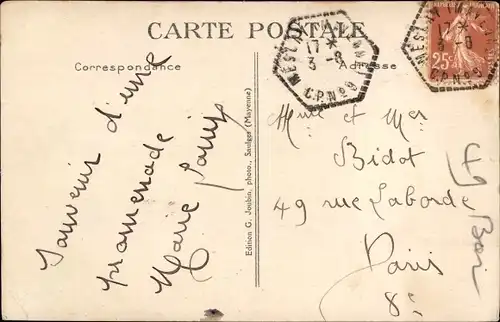 CARTE POSTALE
Correspondance
Adresse
Souvenir d'une
promenade
Marie
Edition G. Joubin, photo., Saulges (Mayenne)
17 *
3 - 8
C.P. N° 9
17 *
3 - 8
C.P. N° 9
25
Mme et Mr
Bidot
49 rue Laborde
Paris
8e